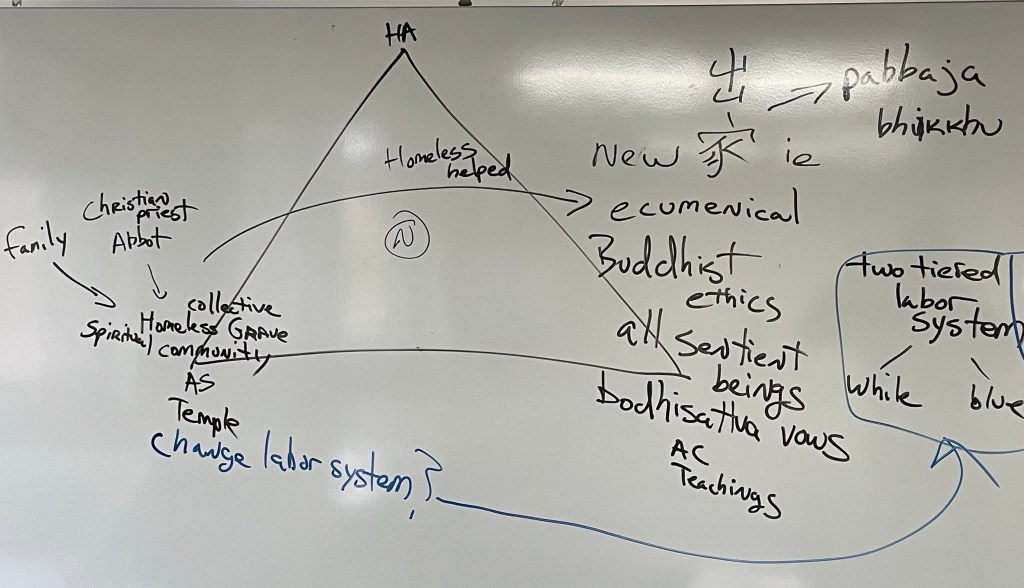 HA
Homeless
helped
N
family
Christian
priest
Abbot
collective
Homeless Grave
Spiritual community
AS
Temple
change labor system?
出
家
New 家 ie
pabbaja
bhikkhu
ecumenical
Buddhist
ethics
all sentient
beings
bodhisattva vows
AC
Teachings
two tiered
labor
system
while
blue